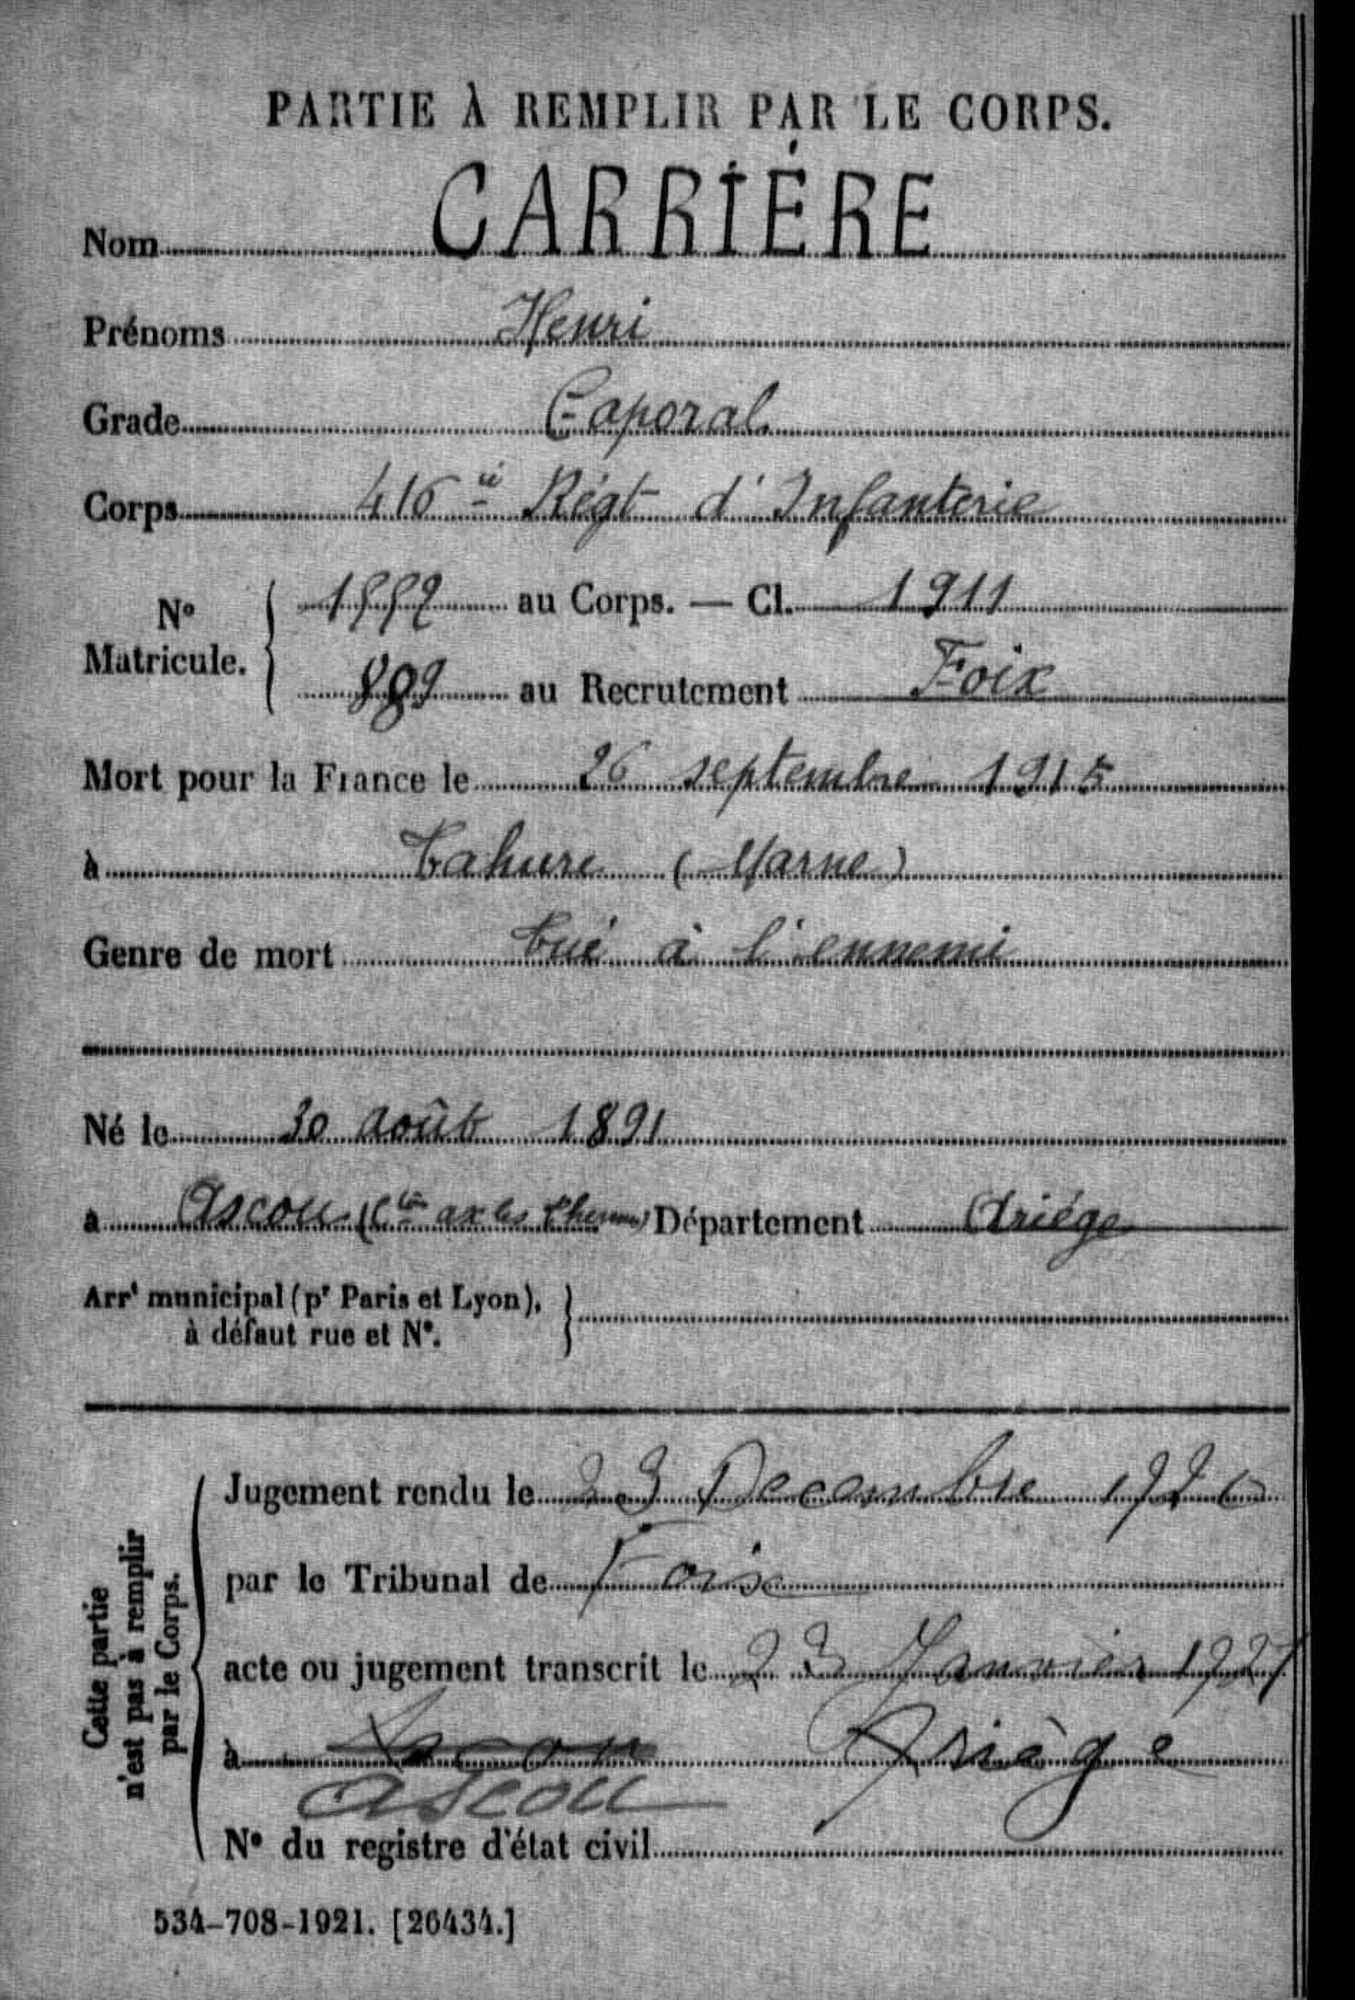 PARTIE À REMPLIR PAR LE CORPS.
Nom CARRIÈRE
Prénoms Henri
Grade Caporal
Corps 416è Régt d'Infanterie
No Matricule. { 1552 au Corps. — Cl. 1911
889 au Recrutement Foix
Mort pour la France le 26 septembre 1915
à Tahure (Marne)
Genre de mort tué à l'ennemi
Né le 30 août 1891
à Ascou (Cton ax les Thermes) Département Ariége
Arrt municipal (pr Paris et Lyon), à défaut rue et No. }
Cette partie n'est pas à remplir par le Corps.
Jugement rendu le 23 Decembre 1920
par le Tribunal de Foix
acte ou jugement transcrit le 23 Janvier 1921
à Ascou Ariège
ascou
No du registre d'état civil
534-708-1921. [26434.]